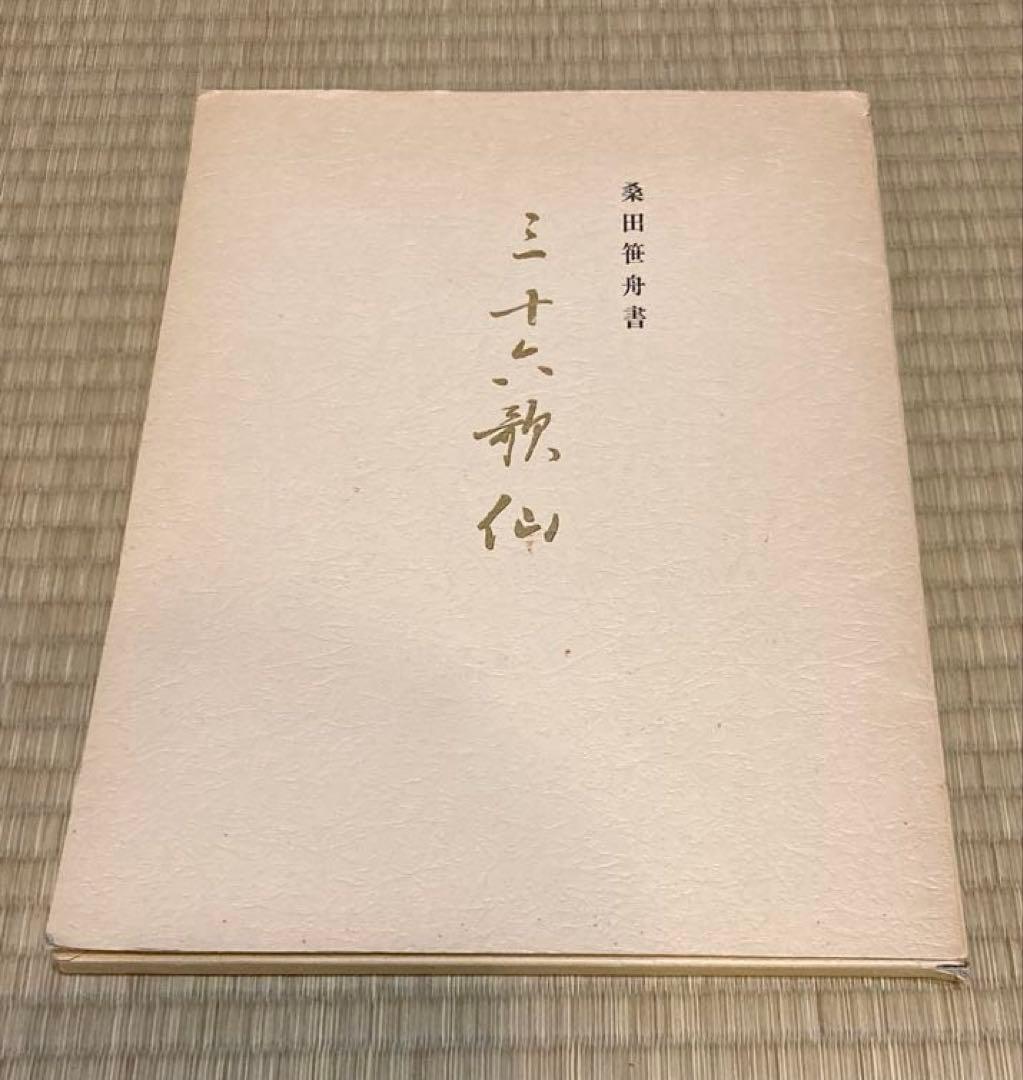 桑田笹舟書
三十六歌仙